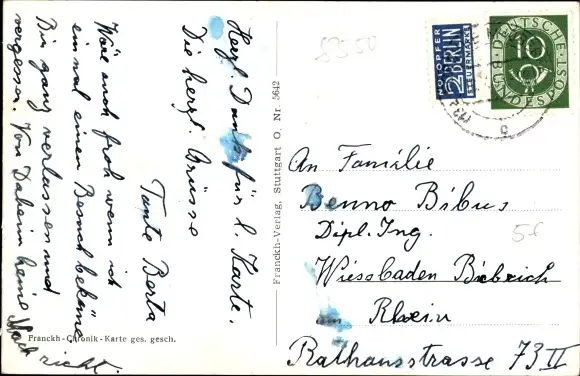 Herzl. Dank für l. Karte.
Die herzl. Grüsse
Tante Berta
Wäre auch froh wenn ich
einmal einen Besuch bekäme
Bin ganz verlassen und
vergessen. Von Daheim keine
Nachricht.
Franckh-Chronik-Karte ges. gesch.
Franckh-Verlag, Stuttgart O, Nr. 5642
8350
NOTOPFER
2 BERLIN
STEUERMARKE
DEUTSCHE
10
BUNDESPOST
An Familie
Benno Bibus
Dipl. Ing.
Wiesbaden Biebrich
am Rhein
Rathausstrasse 73 II